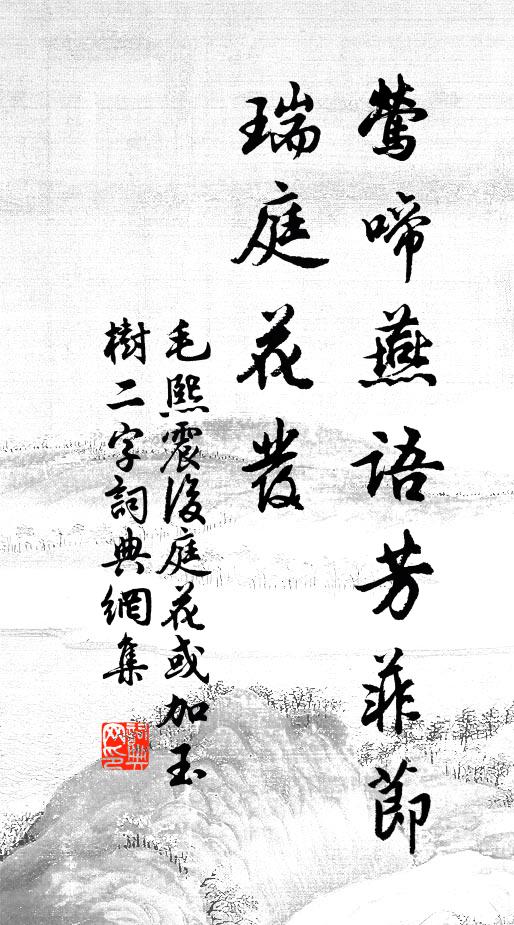 鶯啼燕語芳菲節
瑞庭花發
毛熙震後庭花或加玉
樹二字詞典網集